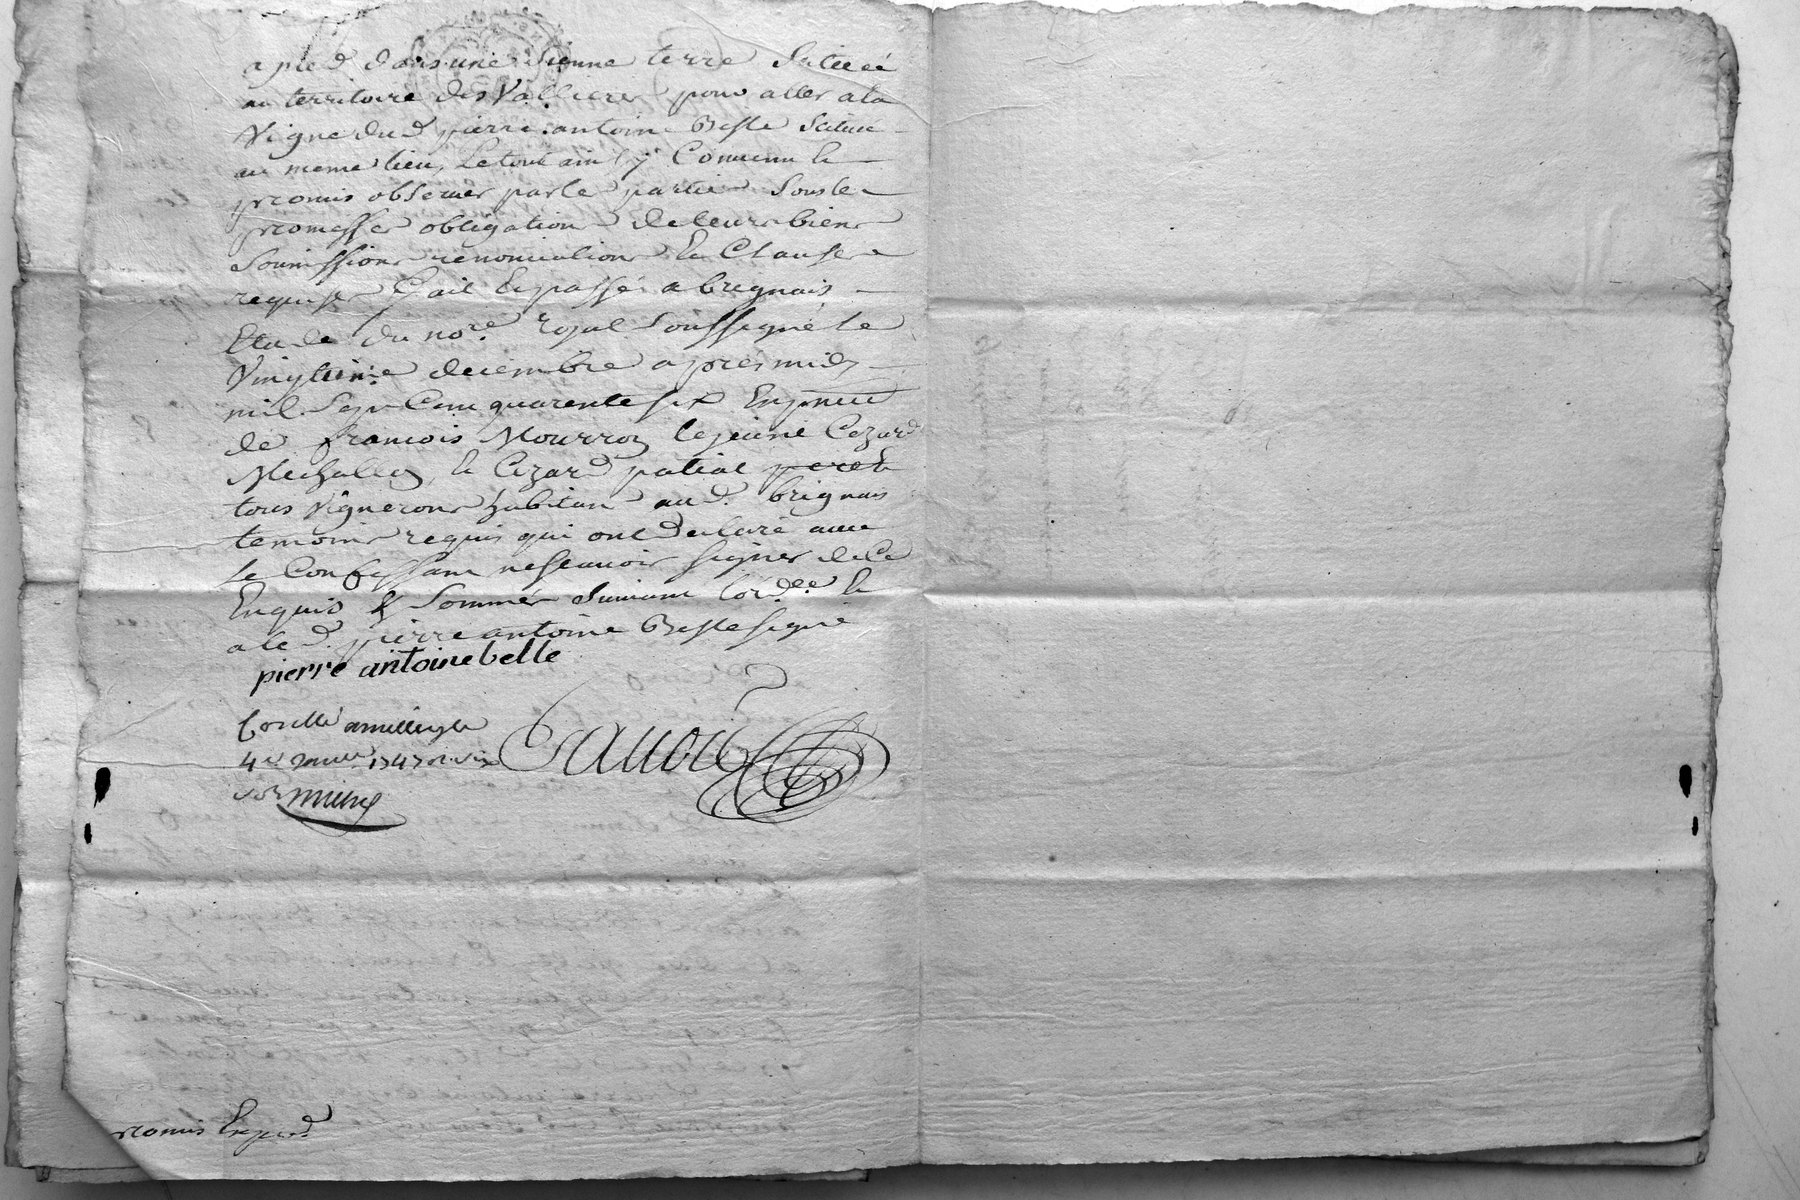 a pied dans une sienne terre Scituéé
au territoire des Vallieres pour aller a la
Vigne dud pierre antoine Belle Scitué
au meme lieu, Le tout ainsy Convenu Et
promis observer par le partie Sous le
promesses obligation de leurs biens
Soumissions renonciations Et Clauses
requises fait Et passé a brignais
Etude du nore. royal Soussigné le
Vingtieme decembre apres midy
mil Sept Cent quarente six En pnce
de francois Mourron le jeune Cezard
Et Cezard patial
tous Vignerons habitant aud. brignais
temoins requis qui ont declaré avec
le Confessant ne Scavoir signer de Ce
Enquis & Sommés Suivant lordce. Et
a led. pierre antoine Belle signé
pierre antoine belle
Conllé a millery le
4e 1747